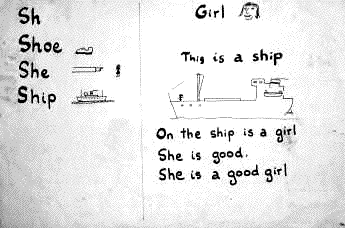 Sh
Shoe
She
Ship
Girl
This is a ship
On the ship is a girl
She is good.
She is a good girl